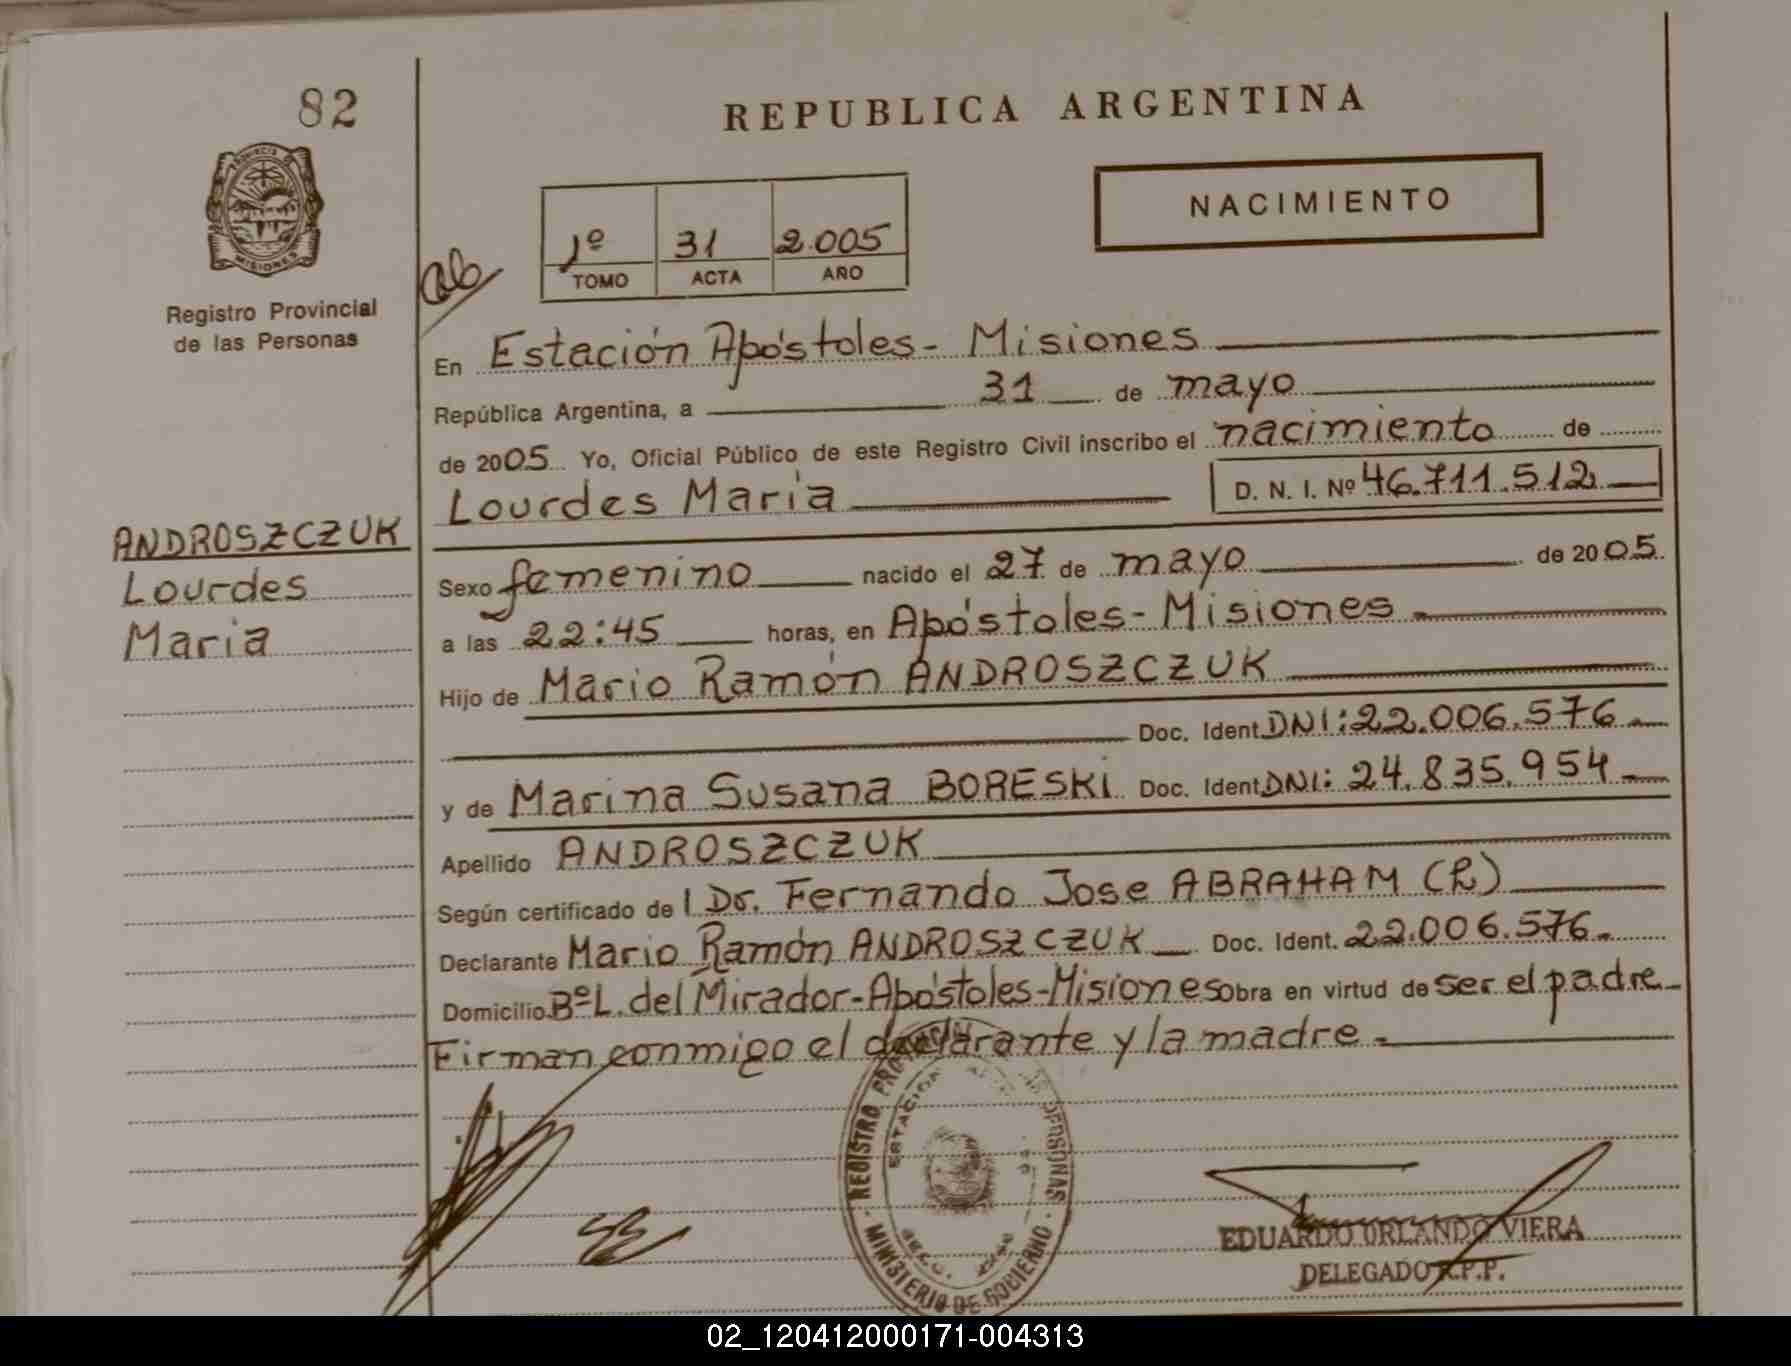 82
REPUBLICA ARGENTINA
PROVINCIA D
MISIONES
NACIMIENTO
1º 31 2.005
TOMO ACTA AÑO
Registro Provincial
de las Personas
En Estación Apóstoles - Misiones
República Argentina, a 31 de mayo
de 2005. Yo, Oficial Público de este Registro Civil inscribo el nacimiento de
Lourdes María D. N. I. Nº 46.711.512
ANDROSZCZUK
Lourdes
María
Sexo femenino nacido el 27 de mayo de 2005.
a las 22:45 horas, en Apóstoles - Misiones
Hijo de Mario Ramón ANDROSZCZUK
Doc. Ident. DNI: 22.006.576
y de Marina Susana BORESKI Doc. Ident. DNI: 24.835.954
Apellido ANDROSZCZUK
Según certificado de l Dr. Fernando Jose ABRAHAM (h)
Declarante Mario Ramón ANDROSZCZUK Doc. Ident. 22.006.576.
Domicilio Bº L. del Mirador - Apóstoles - Misiones obra en virtud de ser el padre
Firman conmigo el declarante y la madre.
REGISTRO PROVINCIAL PERSONAS
ESTACION
MINISTERIO DE GOBIERNO
EDUARDO ORLANDO VIERA
DELEGADO R.P.P.
02_120412000171-004313